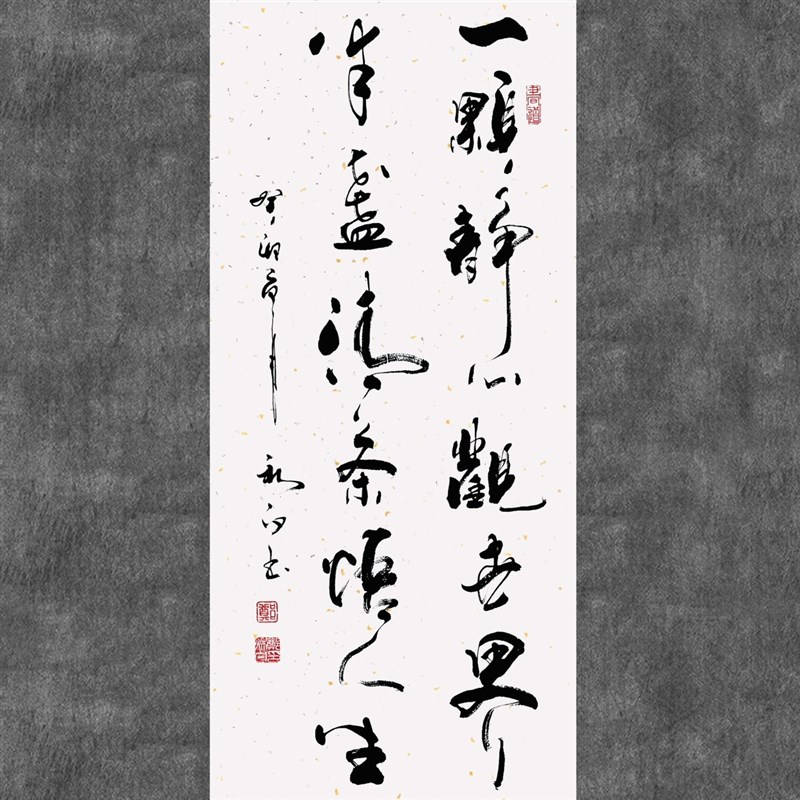 一顆靜心觀世界
半盞清茶悟人生
癸卯
書